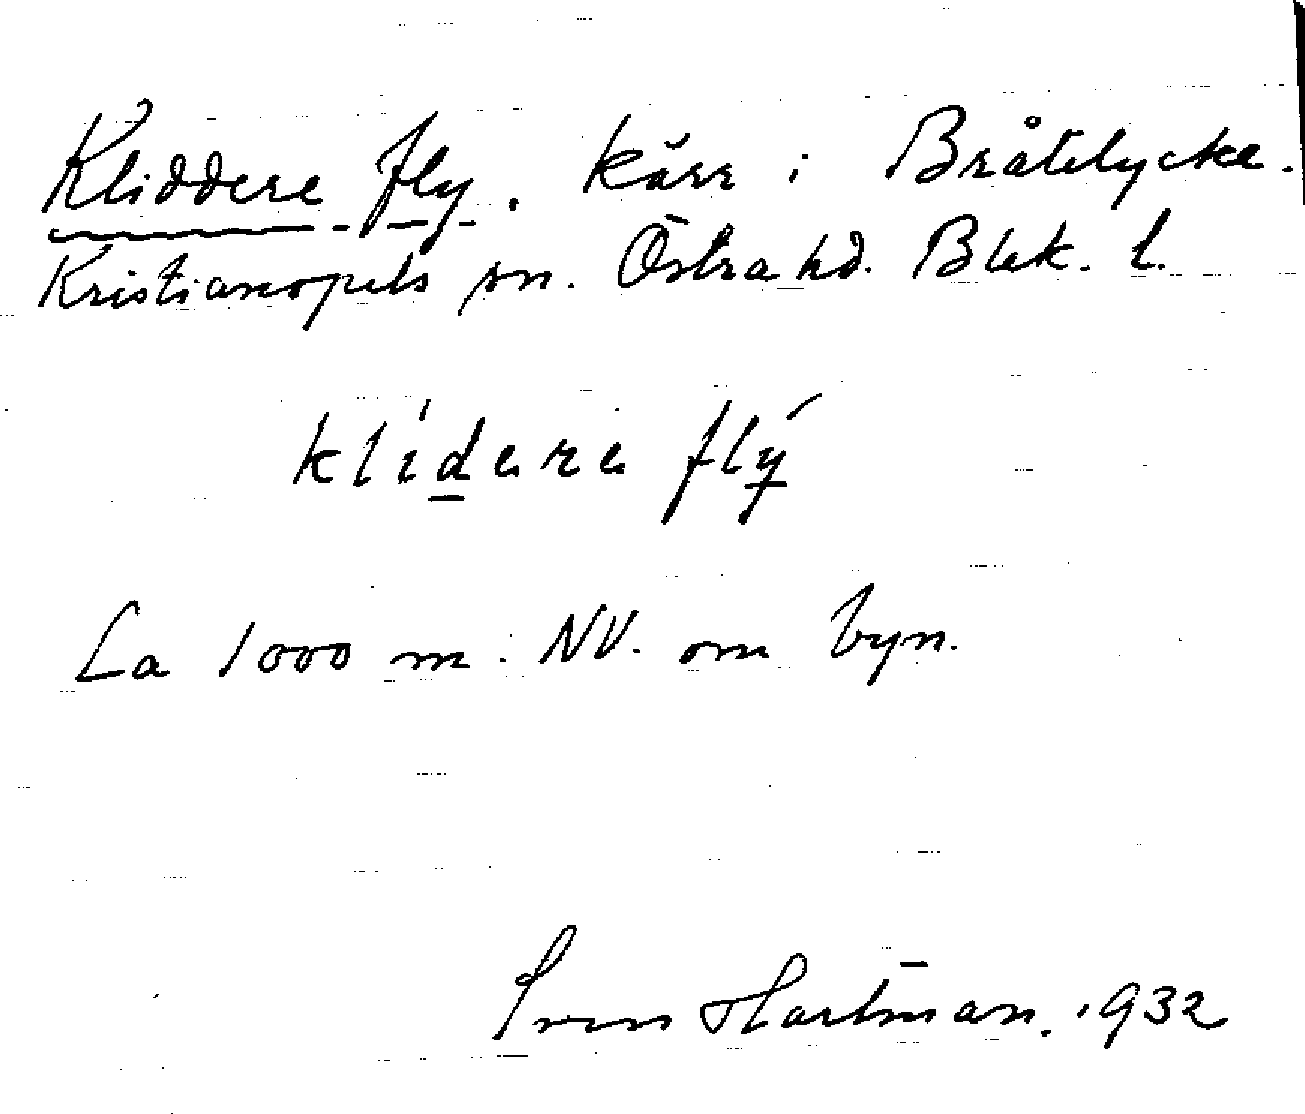 Kliddere fly. Kärr i Bråtelycke.
Kristianopels sn. Östra hd. Blek. l.
klídere flý
Ca 1000 m. NV. om byn.
Sven Hartman. 1932